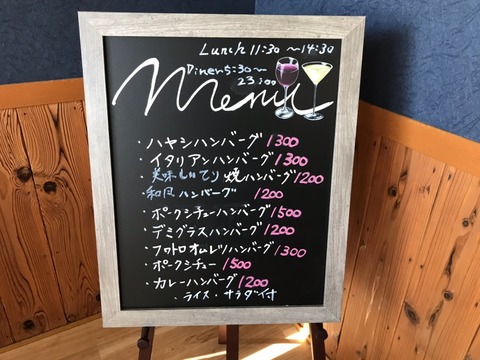 Lunch 11:30 ～14:30
Diner 5:30～
23:00
Menu
・ハヤシハンバーグ 1300
・イタリアンハンバーグ 1300
・美味しいてり焼ハンバーグ 1200
・和風ハンバーグ 1200
・ポークシチューハンバーグ 1500
・デミグラスハンバーグ 1200
・フワトロオムレツハンバーグ 1300
・ポークシチュー 1500
・カレーハンバーグ 1200
・ライス・サラダ付